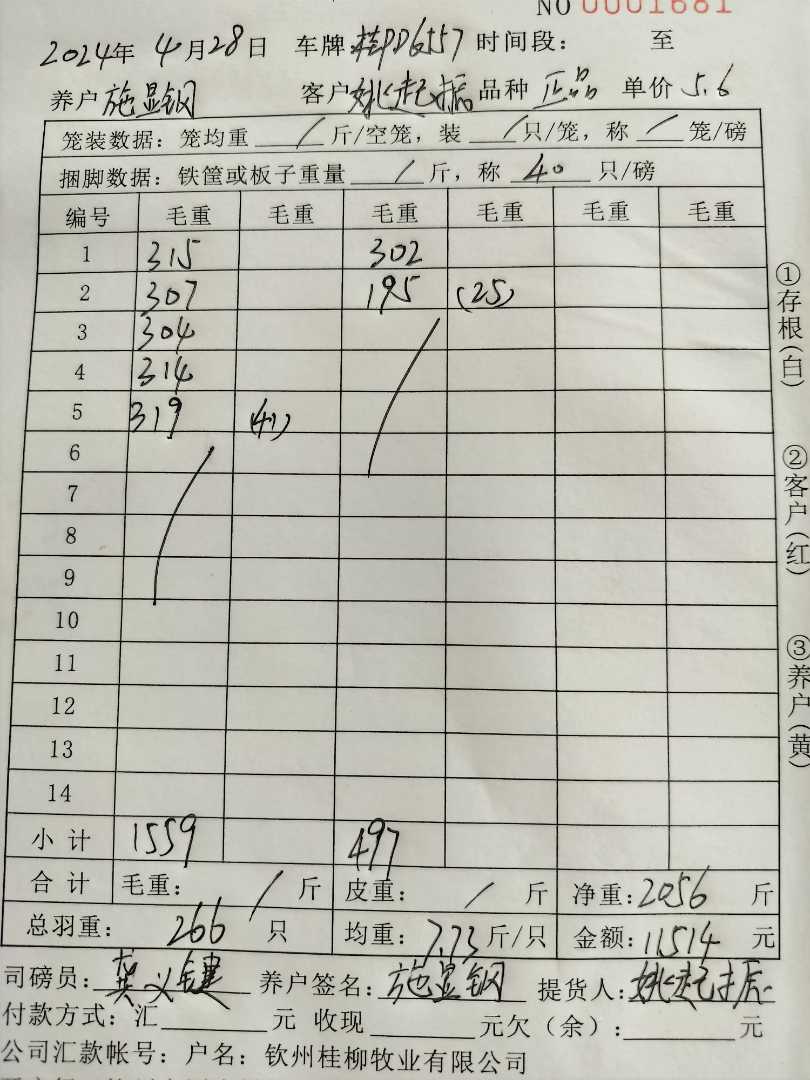 NO 0001681
2024年 4月28日 车牌:桂PD6557 时间段: 至
养户 施显钢 客户 姚起振 品种 正品 单价 5.6
笼装数据: 笼均重 / 斤/空笼, 装 / 只/笼, 称 / 笼/磅
捆脚数据: 铁筐或板子重量 / 斤, 称 40 只/磅
编号 毛重 毛重 毛重 毛重 毛重 毛重
1 315 302
2 307 195 (25)
3 304
4 314
5 319 (41)
6
7
8
9
10
11
12
13
14
小计 1559 497
合计 毛重: / 斤 皮重: / 斤 净重: 2056 斤
总羽重: 266 只 均重: 7.73 斤/只 金额: 11514 元
司磅员: 龚义键 养户签名: 施显钢 提货人: 姚起振
付款方式: 汇 元 收现 元欠(余): 元
公司汇款帐号: 户名: 钦州桂柳牧业有限公司
①存根(白)
②客户(红)
③养户(黄)